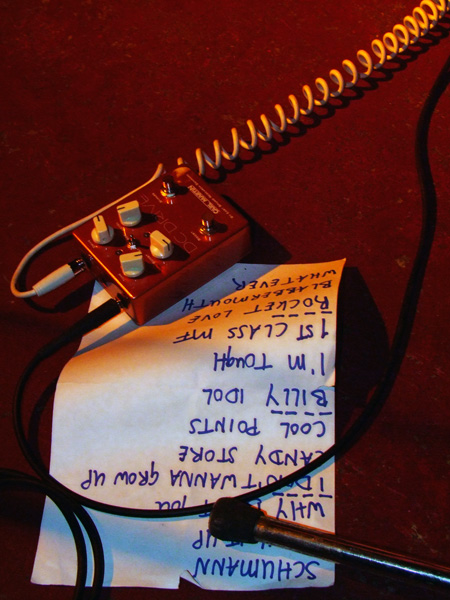 CARL MARTIN
DC DRIVE
SCHUMANN
UP
WHY YOU
I DON'T WANNA GROW UP
CANDY STORE
COOL POINTS
BILLY IDOL
I'M TOUGH
1ST CLASS MF
ROCKET LOVE
BLABBERMOUTH
WHATEVER